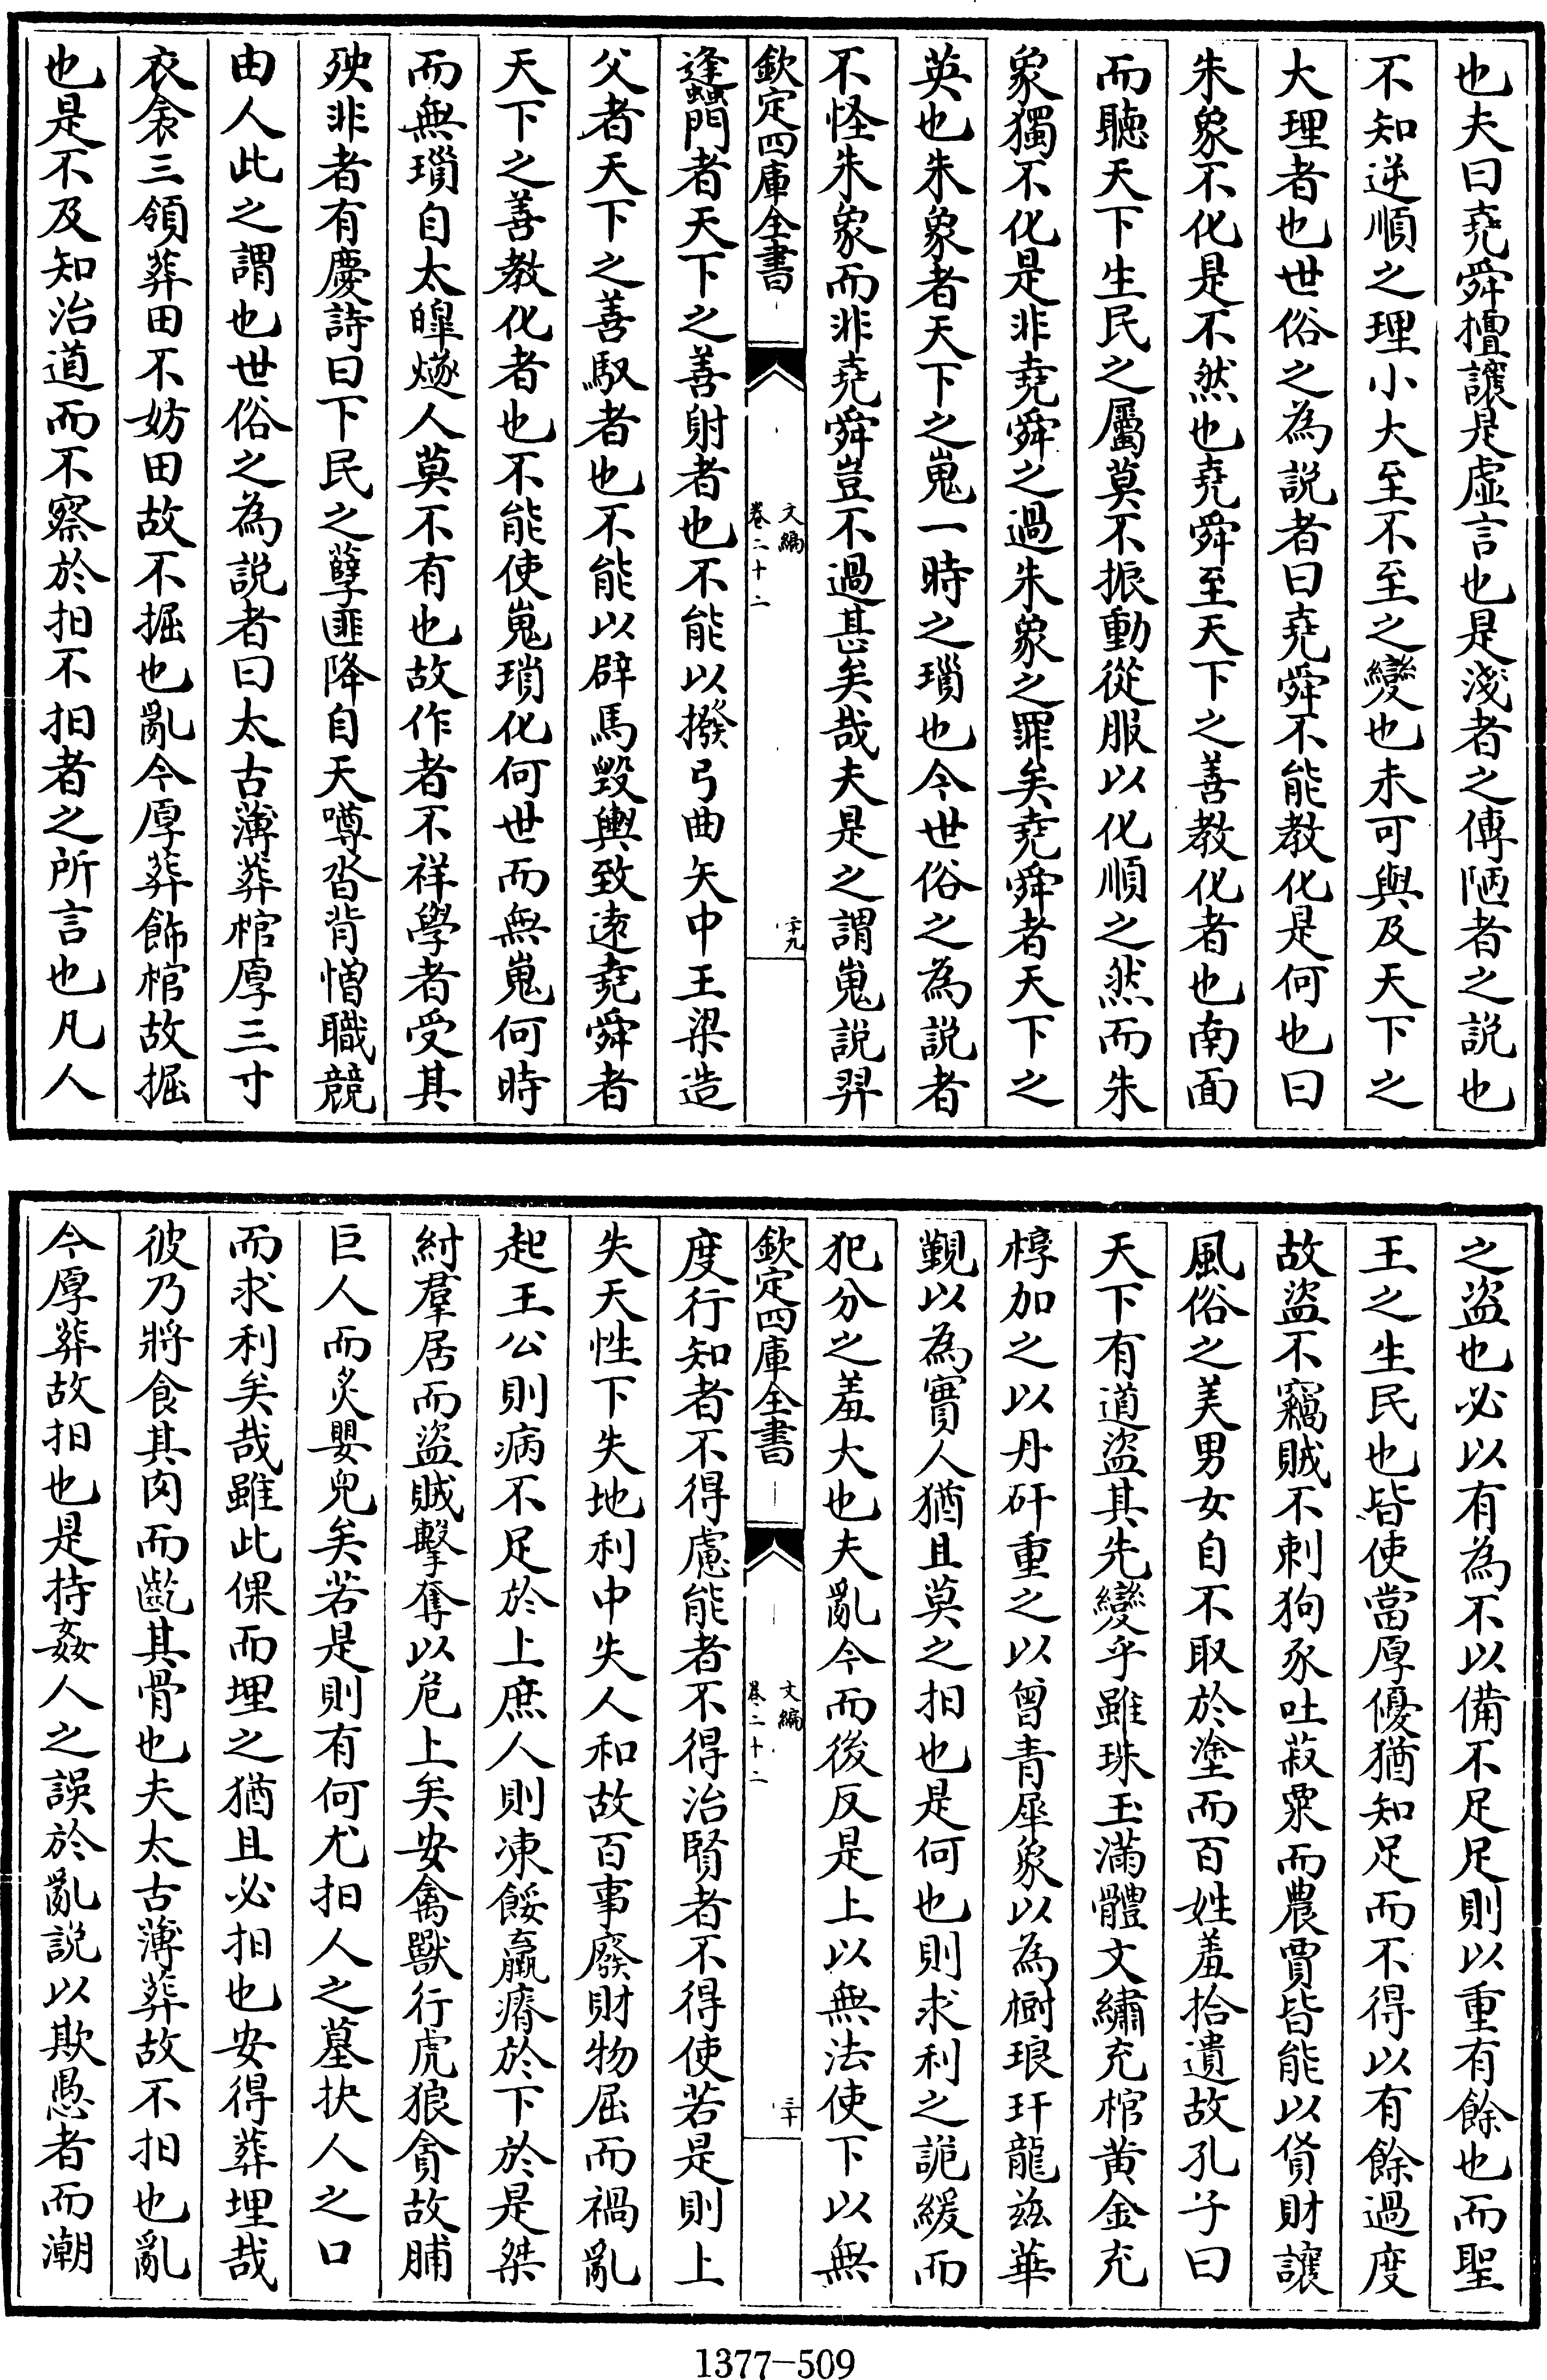 也夫曰堯舜擅讓是虛言也是淺者之傳陋者之説也
不知逆順之理小大至不至之變也未可與及天下之
大理者也世俗之為説者曰堯舜不能教化是何也曰
朱象不化是不然也堯舜至天下之善教化者也南面
而聽天下生民之屬莫不振動從服以化順之然而朱
象獨不化是非堯舜之過朱象之罪矣堯舜者天下之
英也朱象者天下之嵬一時之瑣也今世俗之為説者
不怪朱象而非堯舜豈不過甚矣哉夫是之謂嵬説羿
欽定四庫全書
文編
卷二十二
二十九
逢蠭門者天下之善射者也不能以撥弓曲矢中王梁造
父者天下之善馭者也不能以辟馬毀輿致遠堯舜者
天下之善教化者也不能使嵬瑣化何世而無嵬何時
而無瑣自太皥燧人莫不有也故作者不祥學者受其
殃非者有慶詩曰下民之孽匪降自天噂沓背憎職競
由人此之謂也世俗之為説者曰太古薄葬棺厚三寸
衣衾三領葬田不妨田故不掘也亂今厚葬飾棺故掘
也是不及知治道而不察於抇不抇者之所言也凡人
之盜也必以有為不以備不足足則以重有餘也而聖
王之生民也皆使當厚優猶知足而不得以有餘過度
故盜不竊賊不刺狗豕吐菽粟而農賈皆能以貨財讓
風俗之美男女自不取於塗而百姓羞拾遺故孔子曰
天下有道盜其先變乎雖珠玉滿體文繡充棺黃金充
椁加之以丹矸重之以曾青犀象以為樹琅玕龍茲華
覲以為實人猶且莫之抇也是何也則求利之詭緩而
犯分之羞大也夫亂今而後反是上以無法使下以無
欽定四庫全書
文編
卷二十二
三十
度行知者不得慮能者不得治賢者不得使若是則上
失天性下失地利中失人和故百事廢財物屈而禍亂
起王公則病不足於上庶人則凍餒羸瘠於下於是桀
紂羣居而盜賊擊奪以危上矣安禽獸行虎狼貪故脯
巨人而炙嬰兒矣若是則有何尤抇人之墓抉人之口
而求利矣哉雖此倮而埋之猶且必抇也安得葬埋哉
彼乃將食其肉而齕其骨也夫太古薄葬故不抇也亂
今厚葬故抇也是持姦人之誤於亂説以欺愚者而潮
1377-509